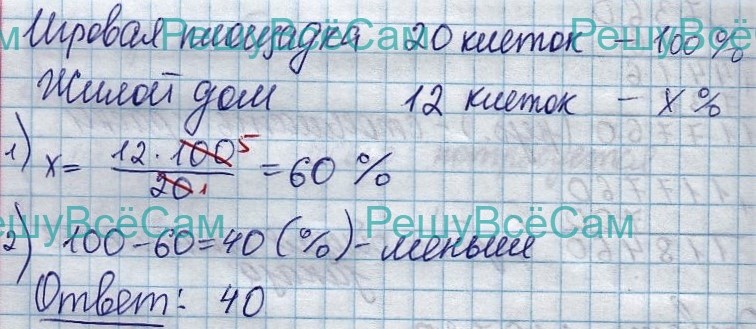 Игровая площадка 20 клеток - 100%
РешуВсёСам РешуВсёСам
Жилой дом 12 клеток - x %
1) x = 12 · 100 5 / 20 1 = 60 %
РешуВсёСам РешуВсёСам
2) 100 - 60 = 40 (%) - меньше
Ответ: 40